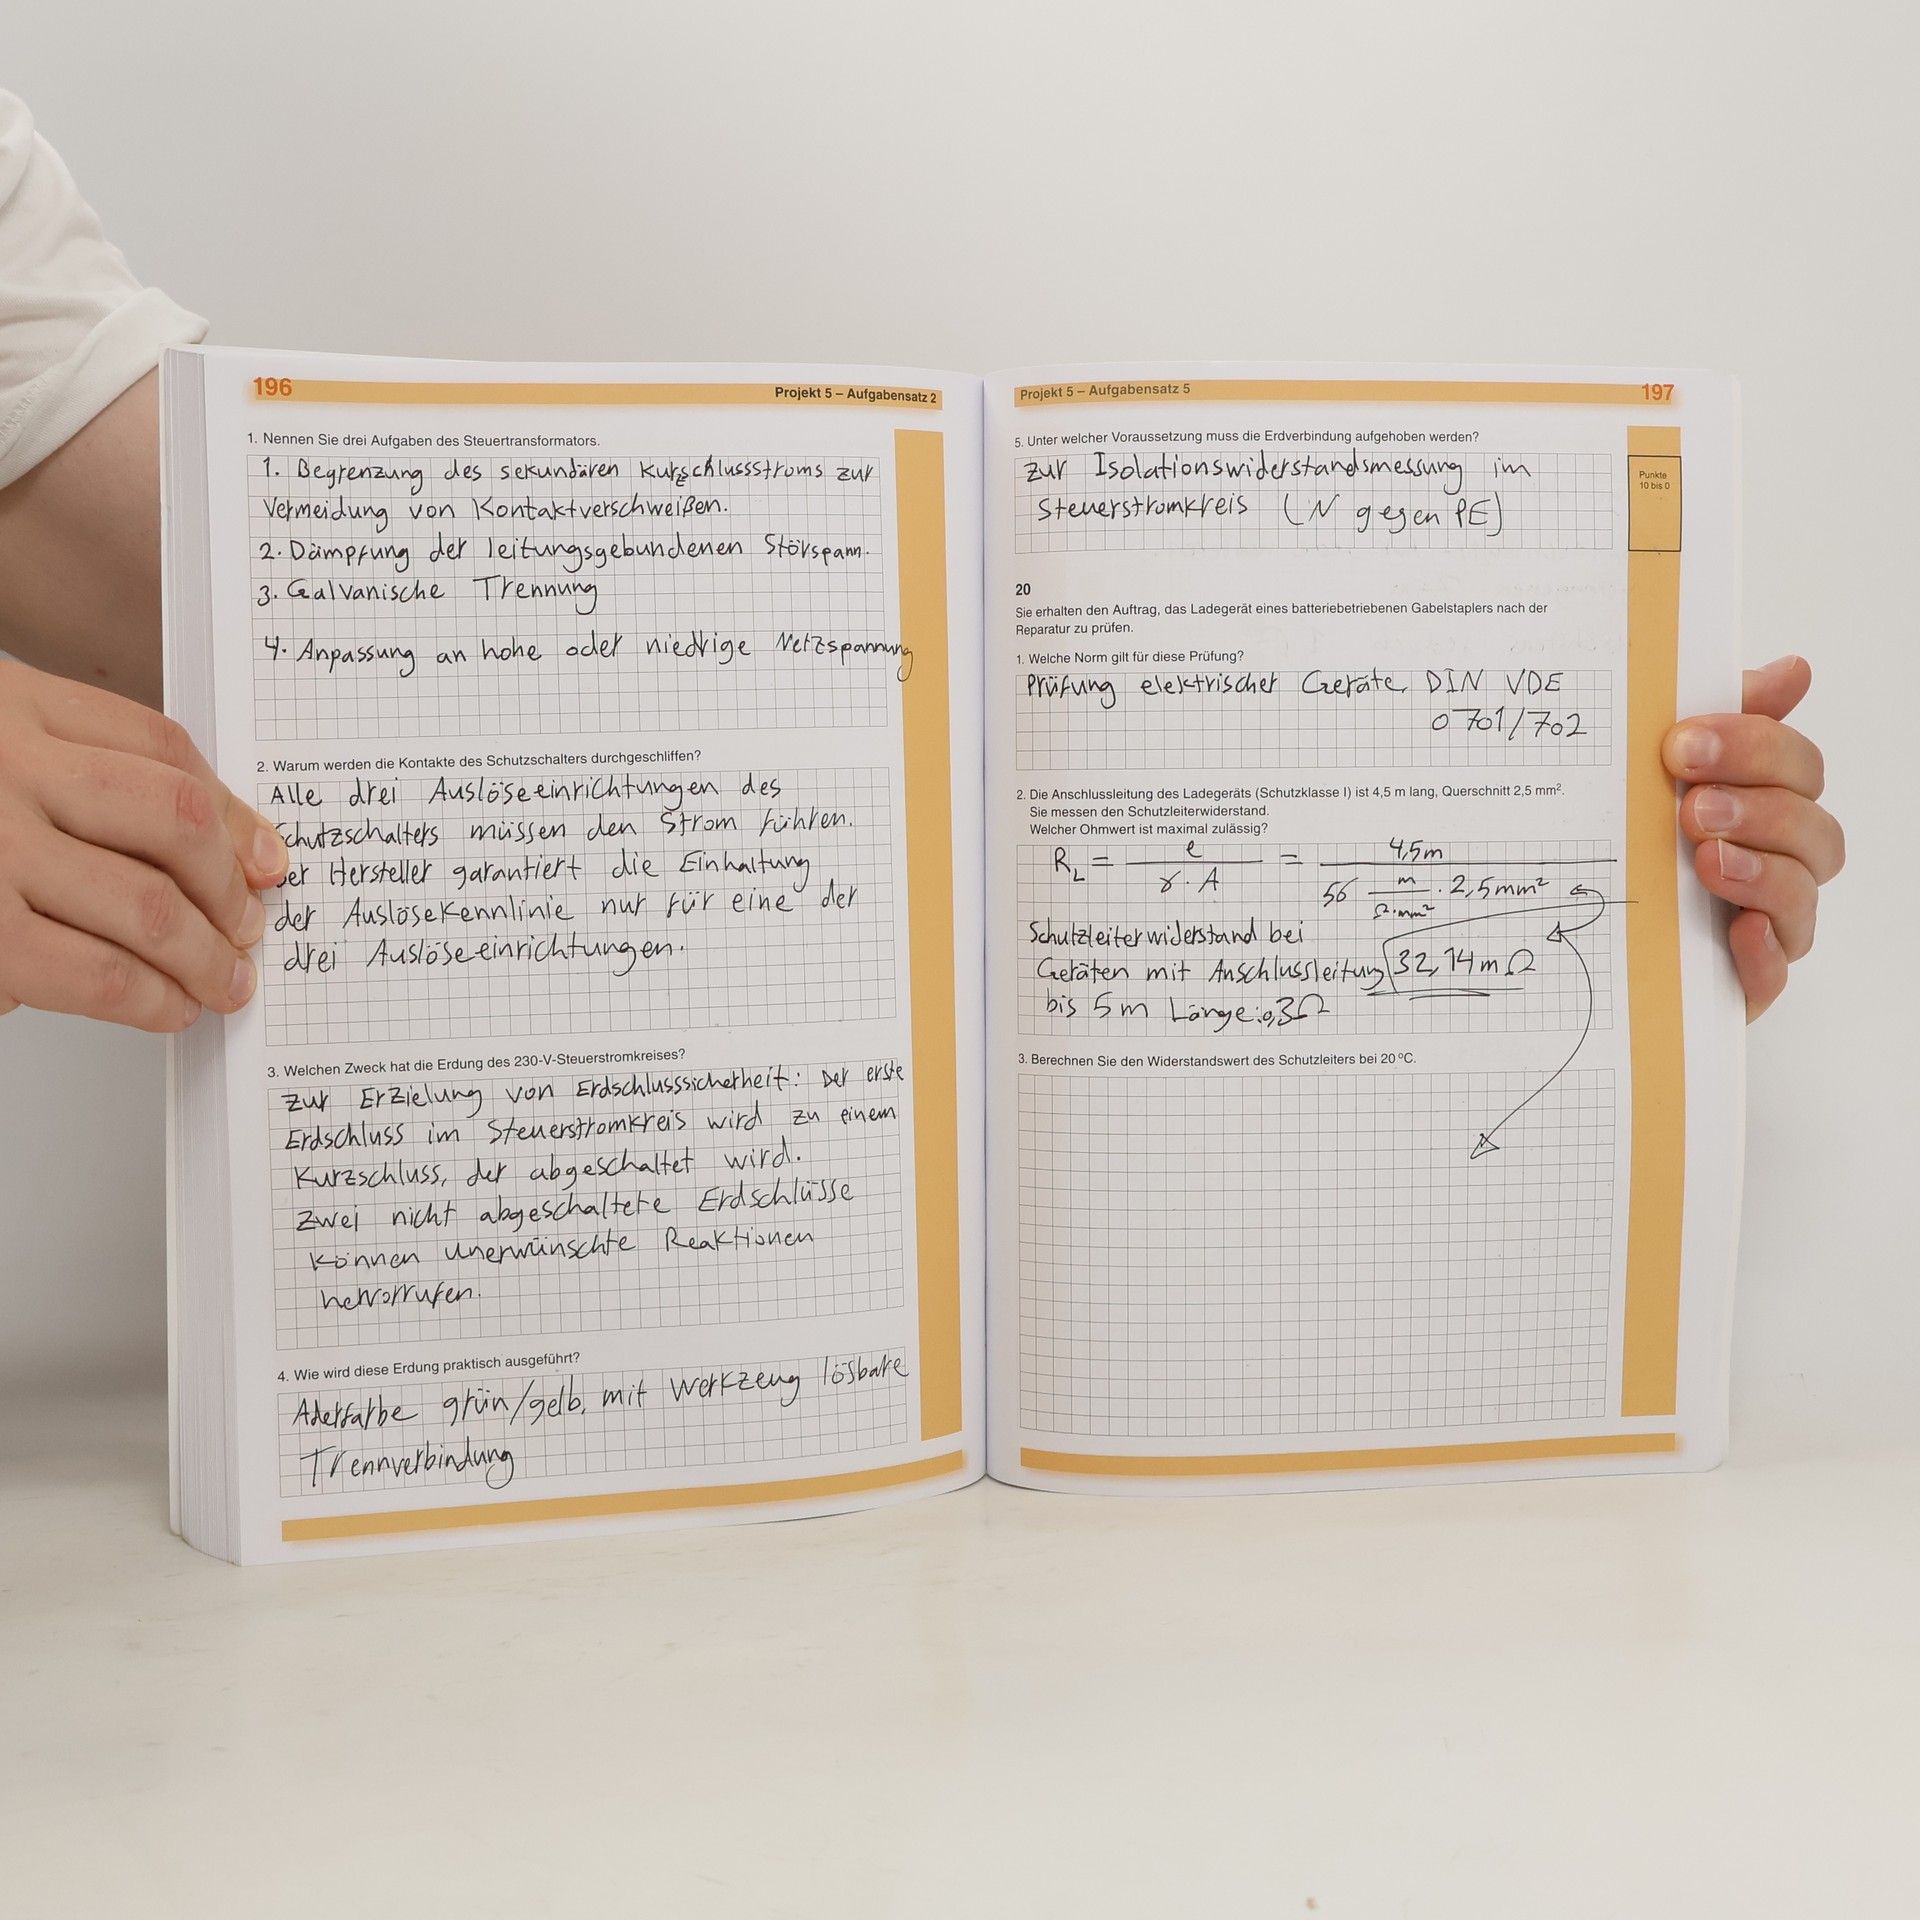 196
Projekt 5 – Aufgabensatz 2
1. Nennen Sie drei Aufgaben des Steuertransformators.
1. Begrenzung des sekundären Kurzschlussstroms zur
Vermeidung von Kontaktverschweißen.
2. Dämpfung der leitungsgebundenen Störspann.
3. Galvanische Trennung
4. Anpassung an hohe oder niedrige Netzspannung
2. Warum werden die Kontakte des Schutzschalters durchgeschliffen?
Alle drei Auslöseeinrichtungen des
Schutzschalters müssen den Strom führen.
Der Hersteller garantiert die Einhaltung
der Auslösekennlinie nur für eine der
drei Auslöseeinrichtungen.
3. Welchen Zweck hat die Erdung des 230-V-Steuerstromkreises?
Zur Erzielung von Erdschlusssicherheit: Der erste
Erdschluss im Steuerstromkreis wird zu einem
Kurzschluss, der abgeschaltet wird.
Zwei nicht abgeschaltete Erdschlüsse
können unerwünschte Reaktionen
hervorrufen.
4. Wie wird diese Erdung praktisch ausgeführt?
Aderfarbe grün/gelb, mit Werkzeug lösbare
Trennverbindung
Projekt 5 – Aufgabensatz 5
197
5. Unter welcher Voraussetzung muss die Erdverbindung aufgehoben werden?
Zur Isolationswiderstandsmessung im
Steuerstromkreis (N gegen PE)
Punkte
10 bis 0
20
Sie erhalten den Auftrag, das Ladegerät eines batteriebetriebenen Gabelstaplers nach der
Reparatur zu prüfen.
1. Welche Norm gilt für diese Prüfung?
Prüfung elektrischer Geräte, DIN VDE
0701/702
2. Die Anschlussleitung des Ladegeräts (Schutzklasse I) ist 4,5 m lang, Querschnitt 2,5 mm².
Sie messen den Schutzleiterwiderstand.
Welcher Ohmwert ist maximal zulässig?
R_L = l / (γ · A) = 4,5m / (56 m/(Ω·mm²) · 2,5mm²)
Schutzleiterwiderstand bei
Geräten mit Anschlussleitung 32,14mΩ
bis 5m Länge: 0,3Ω
3. Berechnen Sie den Widerstandswert des Schutzleiters bei 20 °C.